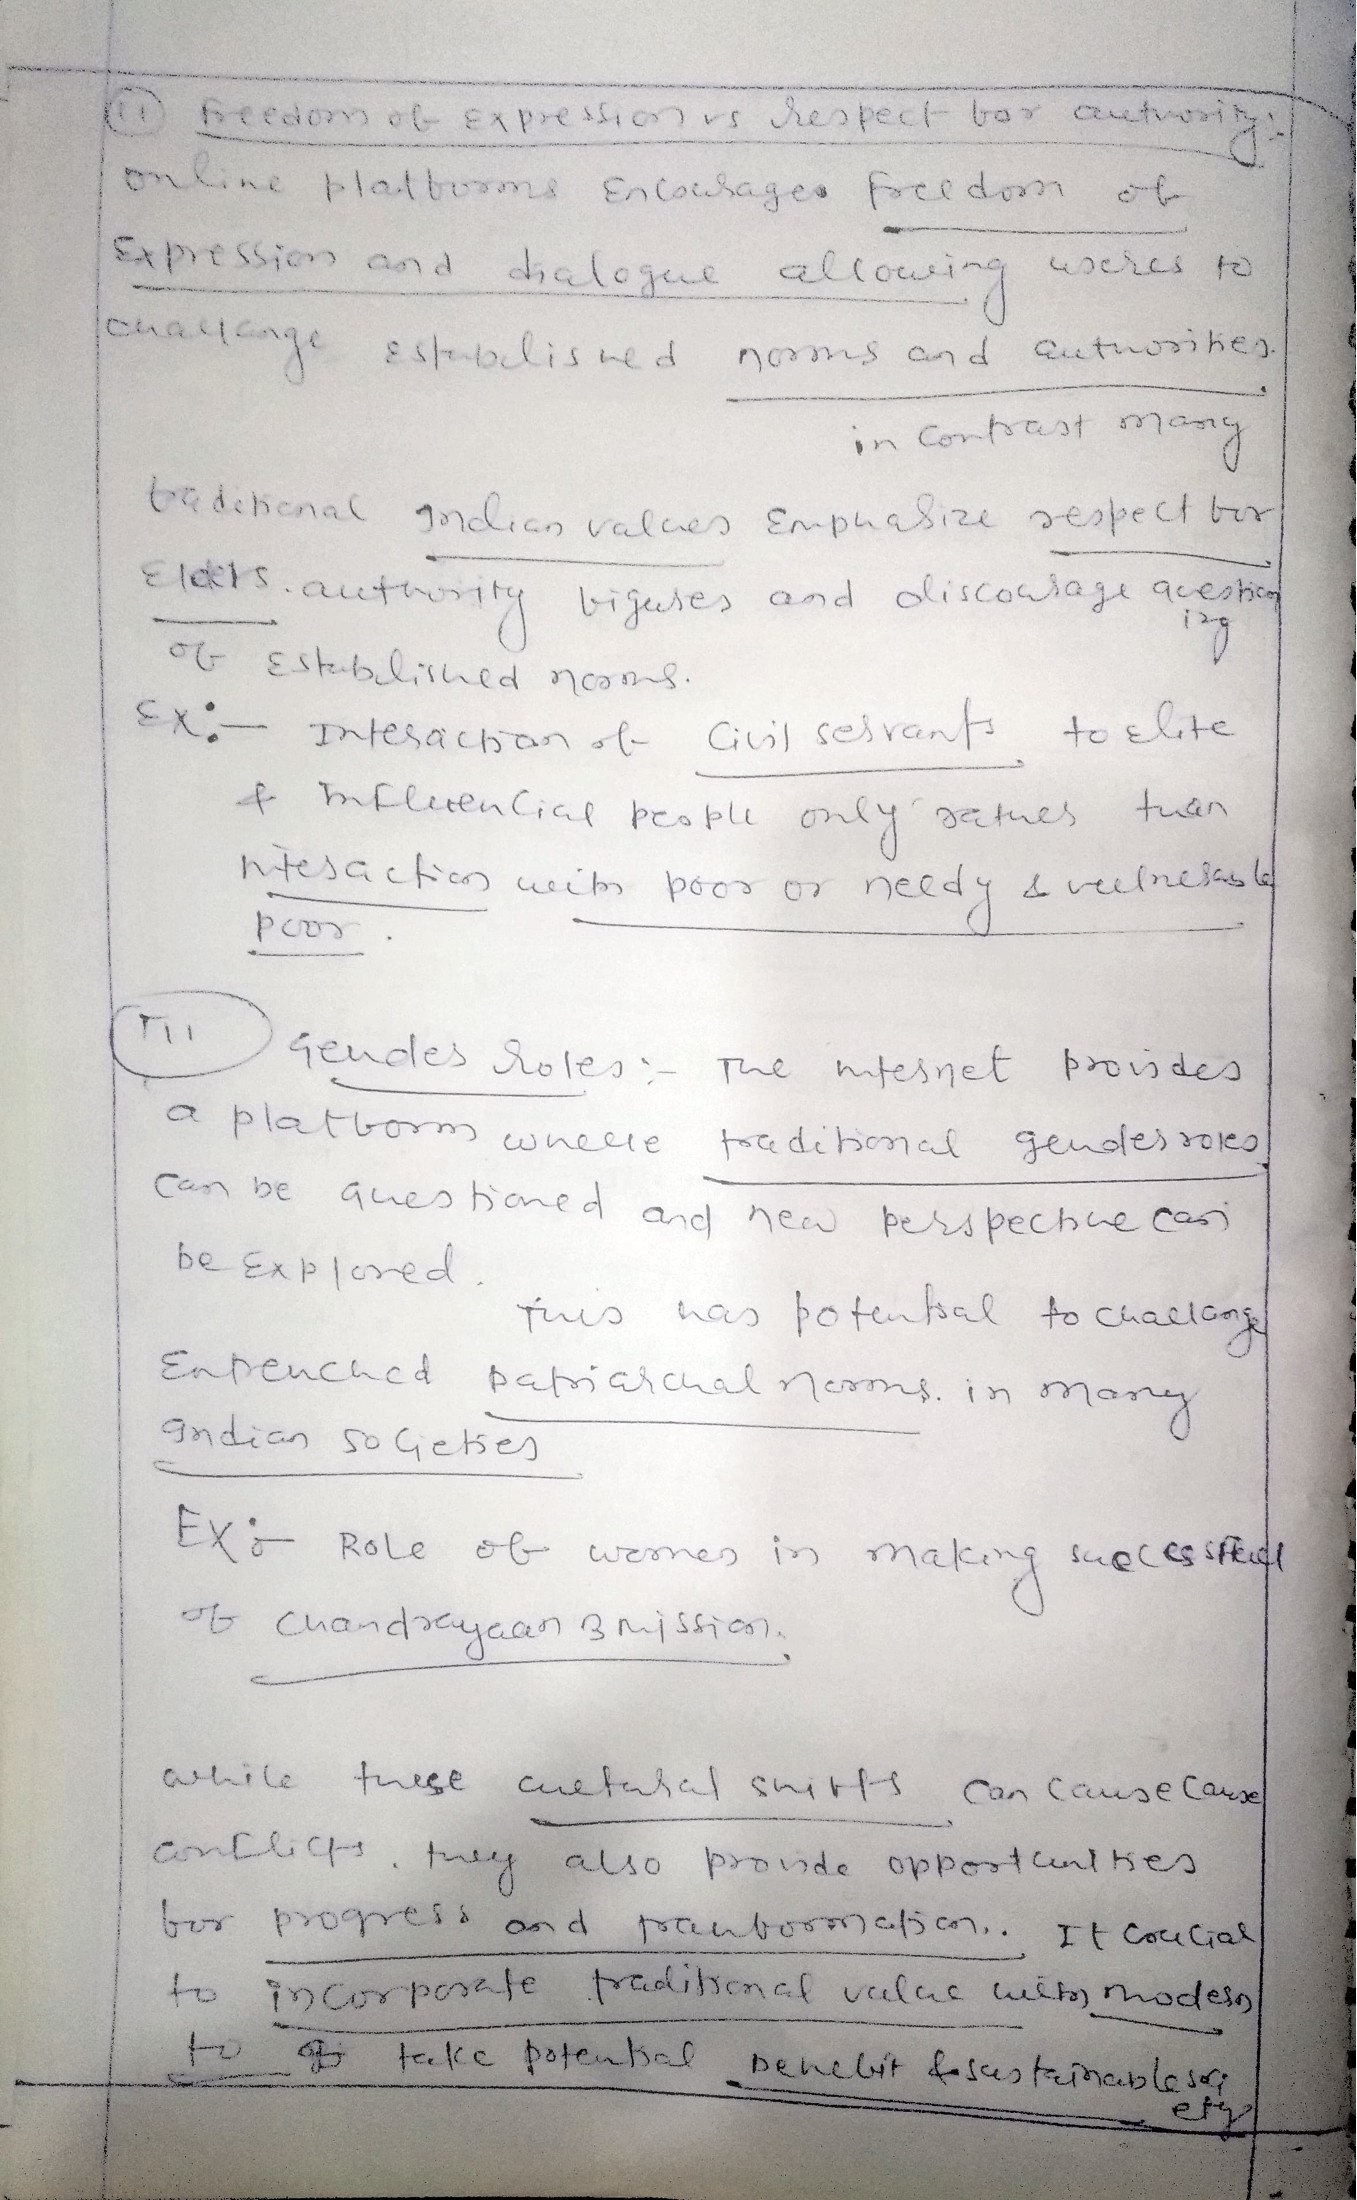 (ii) Freedom of Expression vs Respect for authority:-
online platforms Encourages freedom of
Expression and dialogue allowing useres to
challange established norms and authorities.
in contrast many
traditional Indian values Emphasize respect for
Elders. authority figures and discourage question
ing
of Established norms.
Ex:- Interaction of Civil servants to Elite
& Influencial people only rather than
interaction with poor or needy & vulnerable
poor.
(iii) Gender Roles:- The internet provides
a platform where traditional gender roles
can be questioned and new perspective can
be Explored.
This has potential to challange
Entrenched patriarchal norms. in many
Indian societies
Ex:- Role of women in making successful
of Chandrayaan 3 mission.
while these cultural shifts can cause cause
conflicts, they also provide opportunities
for progress and tranformation.. It crucial
to incorporate traditional value with modern
to take potential benefit & sustainable soci
ety